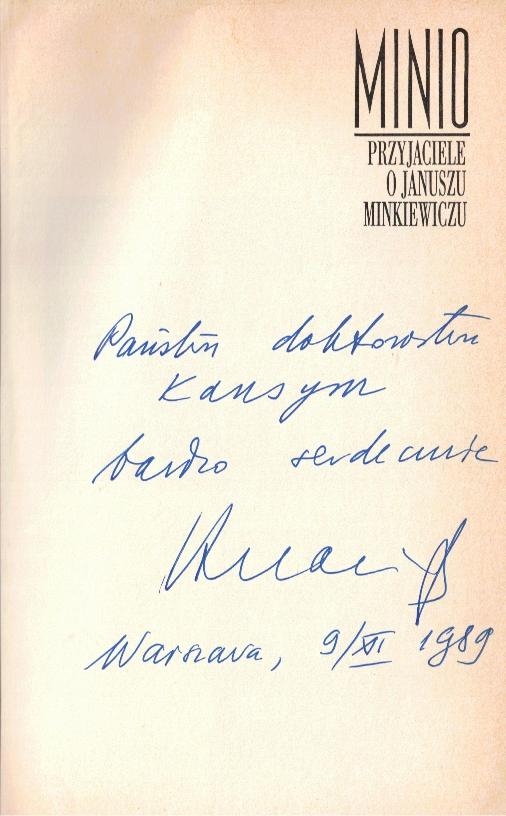 MINIO
PRZYJACIELE
O JANUSZU
MINKIEWICZU
Państwu doktorostwu
Kansym
bardzo serdecznie
Warszawa, 9/XI 1989